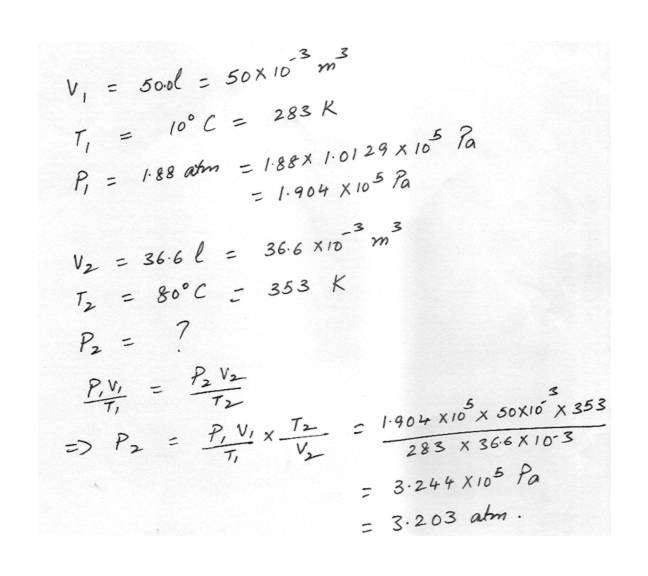 V₁ = 50.0l = 50 X 10⁻³ m³
T₁ = 10° C = 283 K
P₁ = 1.88 atm = 1.88 X 1.0129 X 10⁵ Pa
= 1.904 X 10⁵ Pa
V₂ = 36.6 l = 36.6 X 10⁻³ m³
T₂ = 80° C = 353 K
P₂ = ?
P₁V₁/T₁ = P₂V₂/T₂
=> P₂ = P₁V₁/T₁ × T₂/V₂ = 1.904 X 10⁵ X 50X10⁻³ X 353 / 283 X 36.6 X 10-3
= 3.244 X 10⁵ Pa
= 3.203 atm.